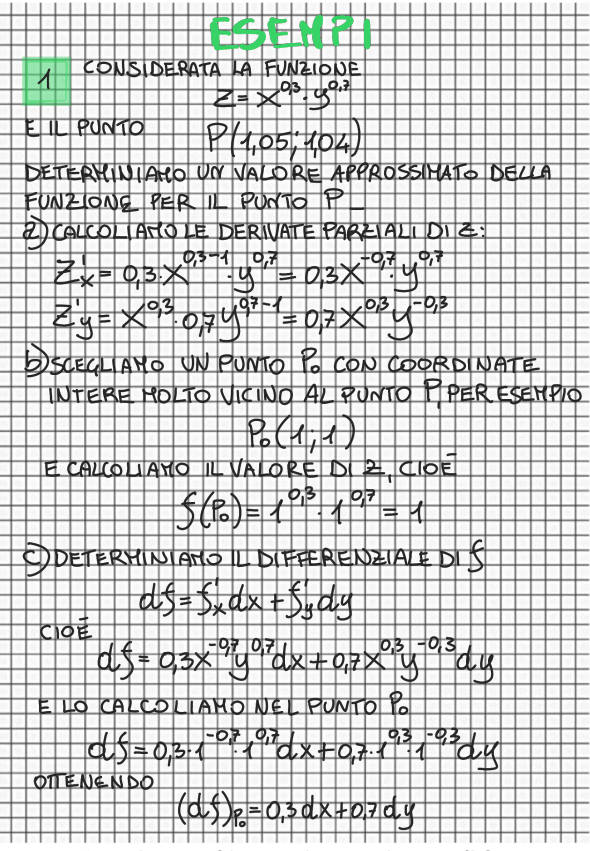 ESEMPI
1 CONSIDERATA LA FUNZIONE
Z = x^0,3 · y^0,7
E IL PUNTO P(1,05; 1,04)
DETERMINIAMO UN VALORE APPROSSIMATO DELLA
FUNZIONE PER IL PUNTO P
a) CALCOLIAMO LE DERIVATE PARZIALI DI Z:
Z'x = 0,3·x^0,3-1 · y^0,7 = 0,3x^-0,7 · y^0,7
Z'y = x^0,3 · 0,7y^0,7-1 = 0,7x^0,3 y^-0,3
b) SCEGLIAMO UN PUNTO P₀ CON COORDINATE
INTERE MOLTO VICINO AL PUNTO P, PER ESEMPIO
P₀(1; 1)
E CALCOLIAMO IL VALORE DI Z, CIOÈ
f(P₀) = 1^0,3 · 1^0,7 = 1
c) DETERMINIAMO IL DIFFERENZIALE DI f
df = f'x dx + f'y dy
CIOÈ
df = 0,3x^-0,7 y^0,7 dx + 0,7x^0,3 y^-0,3 dy
E LO CALCOLIAMO NEL PUNTO P₀
df = 0,3·1^-0,7 · 1^0,7 dx + 0,7·1^0,3 · 1^-0,3 dy
OTTENENDO
(df)P₀ = 0,3dx + 0,7dy